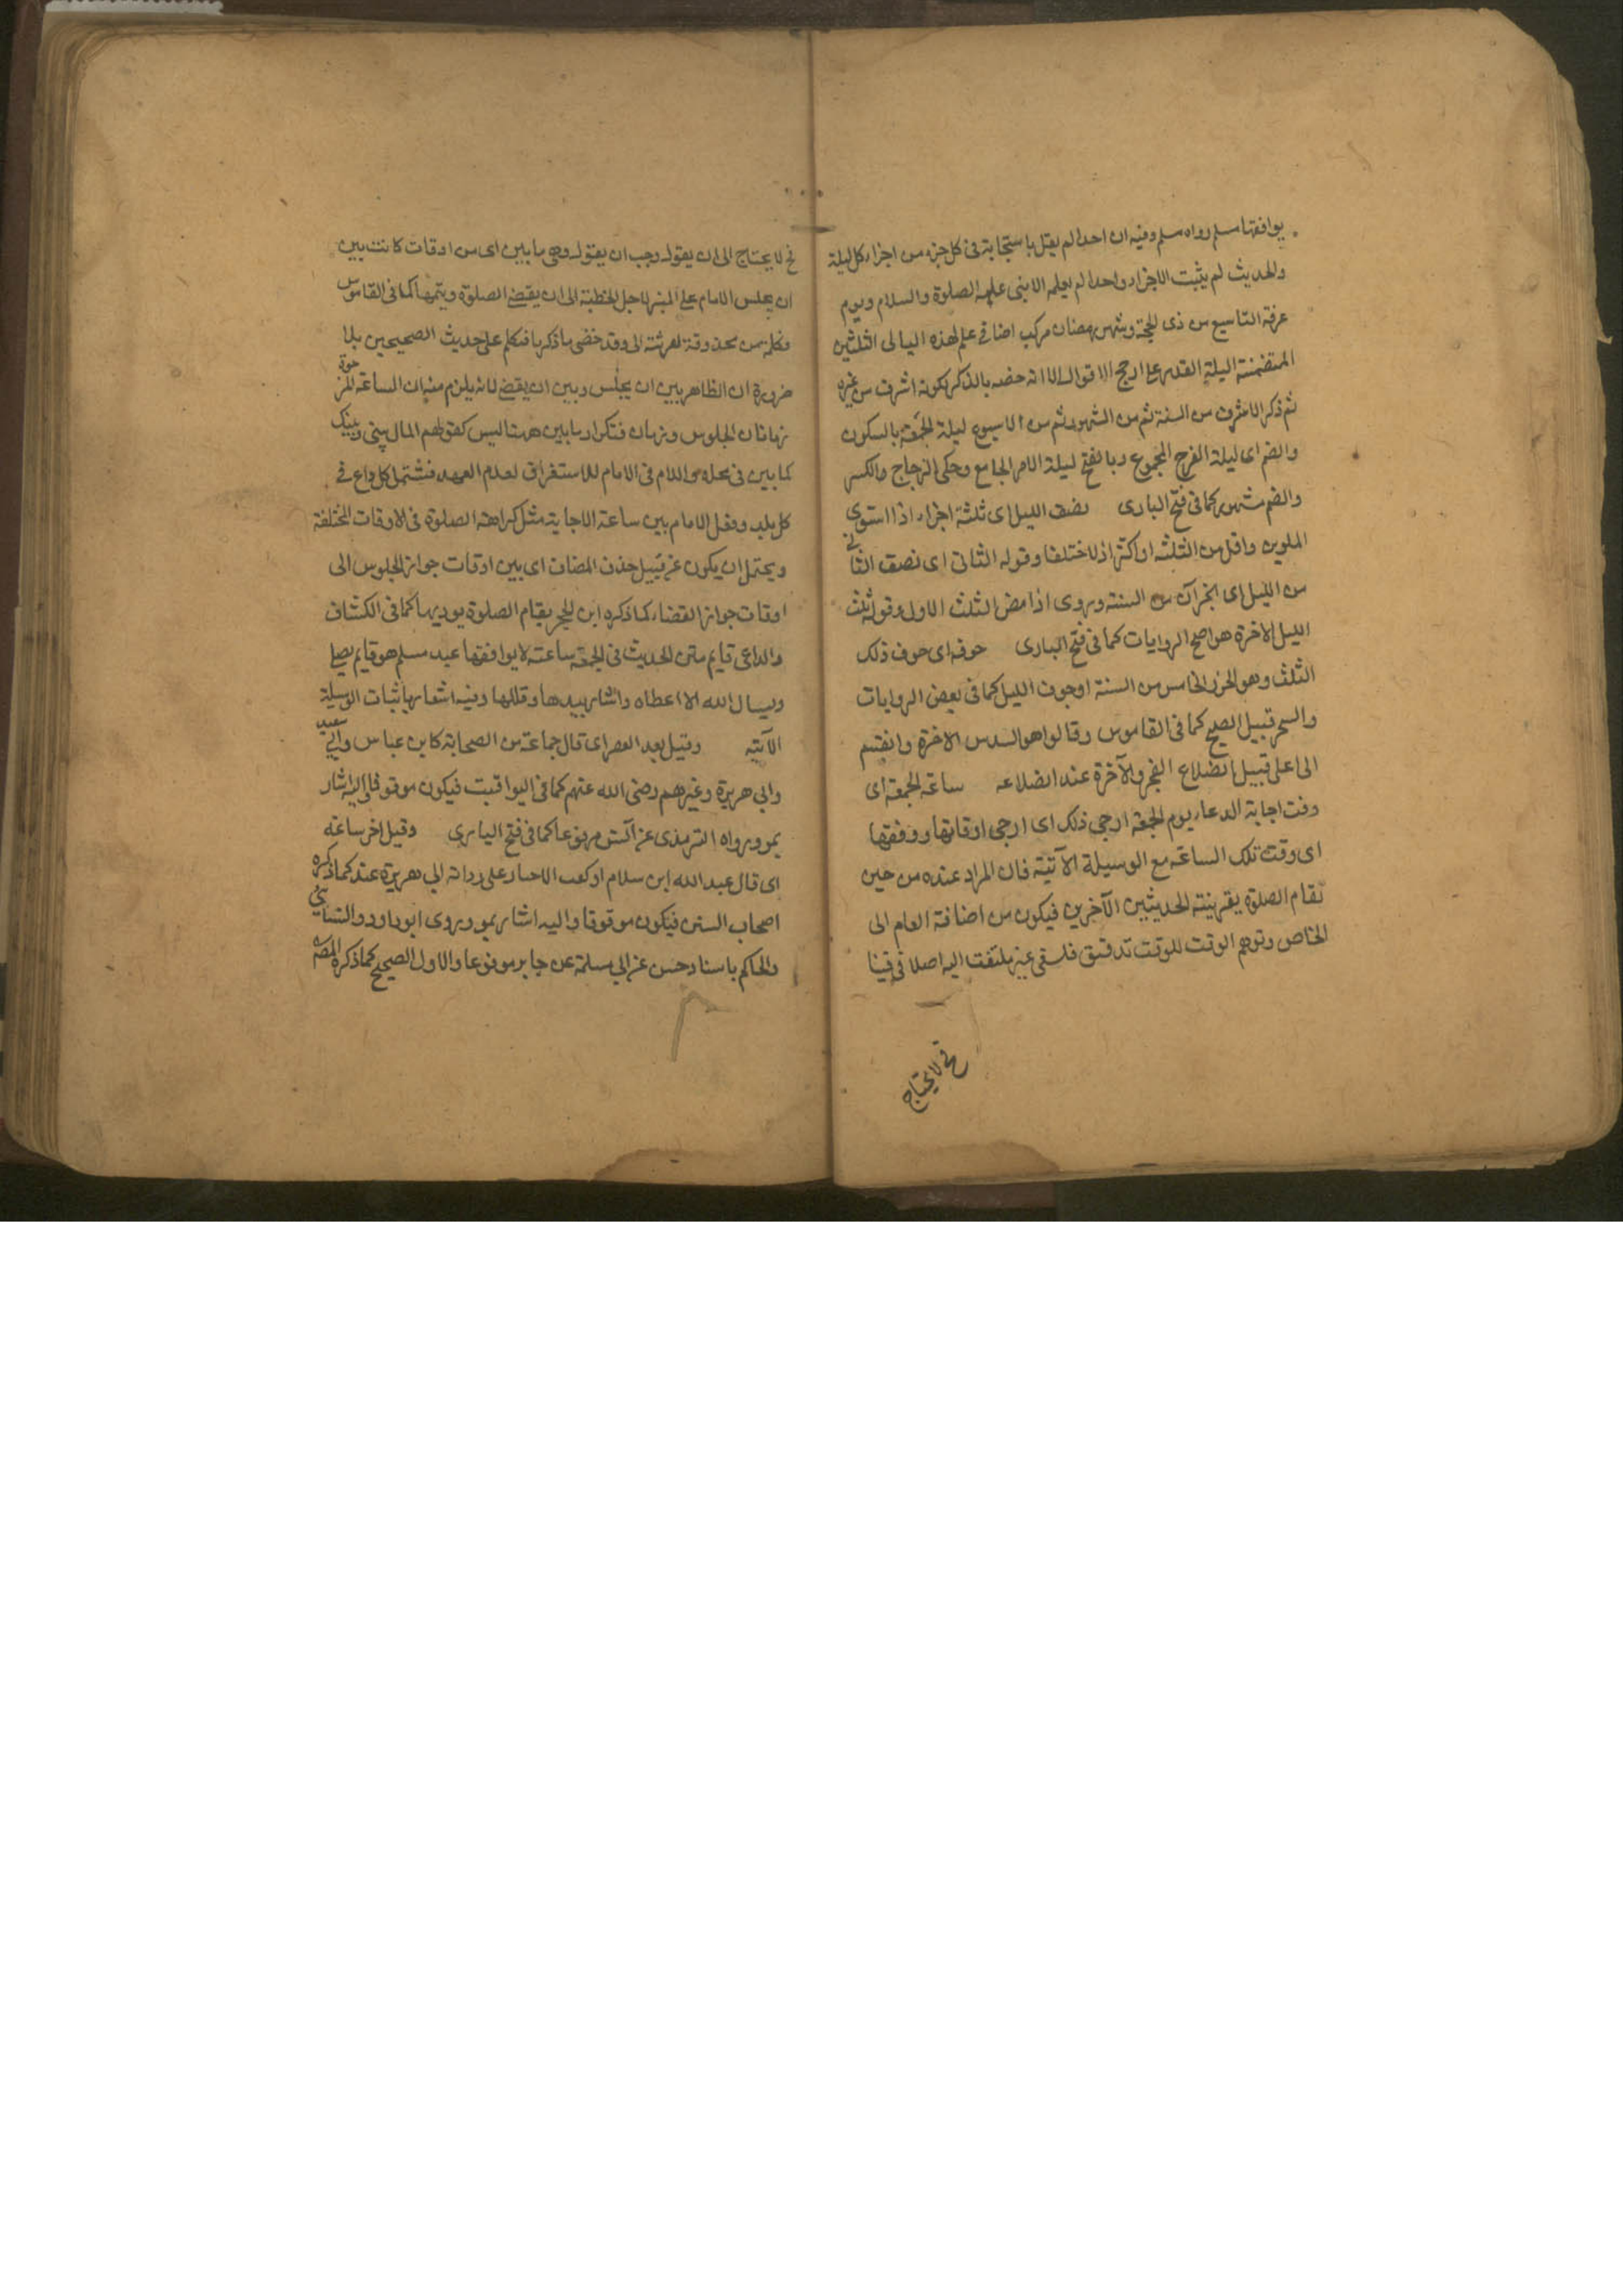 يوافقها مسلم رواه مسلم وفيه ان احدا لم يقل باستجابة في كل جزء من اجزاء كل ليلة
والحديث لم يثبت الاجزاء واحدا لم يعلمه الا نبي عليه الصلوة والسلام ويوم
عرفة التاسع من ذى الحجة وشهر رمضان مركب اضافي علم لهذه الليالى الثلثين
المتضمنة ليلة القدر على ارجح الاقوال الا انه خصه بالذكر لكونه اشرف من غيره
ثم ذكر الاشرف من السنة ثم من الشهور ثم من الاسبوع ليلة الجمعة بالسكون
والضم اى ليلة الفرج المجموع وبالفتح ليلة الامر الجامع وحكى الزجاج والكسر
والضم مشهور كما في فتح البارى نصف الليل اى ثلثة اجزاء اذا استوى
الملوين واقل من الثلثه او اكثر اذا اختلفا وقوله الثاني اى نصف الثاني
من الليل اى من السنة وروى اذا مضى الثلث الاول وقوله ثلث
الليل الاخرة هو اصح الروايات كما في فتح البارى جوفه اى جوف ذلك
الثلث وهو الجزء الخامس من السنة او جوف الليل كما في بعض الروايات
والسحر قبيل الصبح كما في القاموس وقالوا هو السدس الاخرة وانقسم
الى اعلى قبيل انضلاع الفجر والآخرة عند انضلاعه ساعة الجمعة اى
وقت اجابة الدعاء يوم الجمعة ارجى ذلك اى ارجى اوقاتها ووقتها
اى وقت تلك الساعة مع الوسيلة الآتية فان المراد عنده من حين
تقام الصلوة بقرينة الحديثين الآخرين فيكون من اضافة العام الى
الخاص وتوهم الوقت للوقت تدقيق فلسفى غير ملتفت اليه اصلا في
فح لا يحتاج
فح لا يحتاج الى ان يقول وجب ان يقول وهى ما بين اى من اوقات كانت بين
ان يجلس الامام على المنبر لاجل الخطبة الى ان يقضى الصلوة ويتمها كما في القاموس
فكلمة من محذوفة لقرينة الى وقد خفى ما ذكرنا فتكلم على حديث الصحيحين بلا
ضرورة ان الظاهر بين ان يجلس وبين ان يقضى لانه يلزم منه ان الساعة المرجوة
زمانان الجلوس وزمان فتكرار ما بين ههنا ليس كقولهم المال بينى وبينك
كما بين في محله واللام في الامام للاستغراق لعدم العهد فشتمل كل داع في
كل بلد وفعل الامام بين ساعة الاجابة مثل كراهة الصلوة في الاوقات المختلفة
ويحتمل ان يكون من قبيل حذف المضاف اى بين اوقات جواز الجلوس الى
اوقات جواز القضاء كما ذكره ابن الحجر يقام الصلوة يوديها كما في الكشاف
والداعى قايم متن الحديث في الجمعة ساعة لا يوافقها عبد مسلم هو قايم يصلى
ويسال الله الا اعطاه واشار بيده وقللها وفيه اشعار باثبات الوسيلة
الآتيه وقيل بعد العصر اى قال جماعة من الصحابة كابن عباس وابي سعيد
وابي هريرة وغيرهم رضى الله عنهم كما في اليواقيت فيكون موقوفا واليه اشار
بمو ورواه الترمذى عن انس مرفوعا كما في فتح البارى وقيل اخر ساعة
اى قال عبد الله ابن سلام او كعب الاحبار على رواية ابي هريرة عنه كما ذكره
اصحاب السنن فيكون موقوفا واليه اشار بمو وروى ابو داود والنسائي
والحاكم باسناد حسن عن ابي سلمة عن جابر مرفوعا والاول الصحيح كما ذكره المص